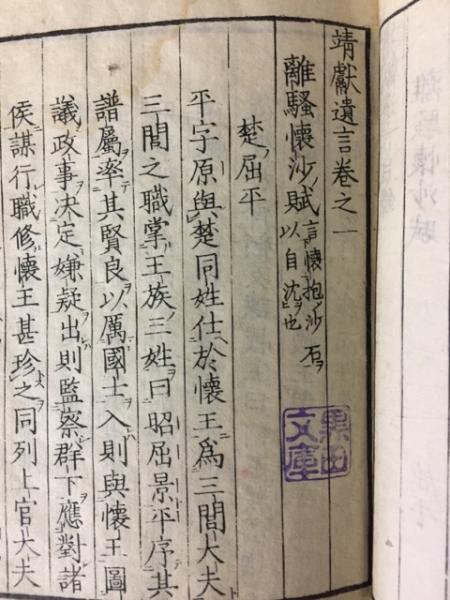 靖獻遺言卷之一
離騷懷沙ノ賦 言懷抱沙石ヲ以自沈ムヲ也
楚屈平
平字原與楚同姓仕於懷王爲三閭大夫
三閭之職掌王族三姓曰昭屈景平序其
譜屬率其賢良以厲國士入則與懷王圖
議政事決定嫌疑出則監察群下應對諸
侯謀行職修懷王甚珍之同列上官大夫
文庫